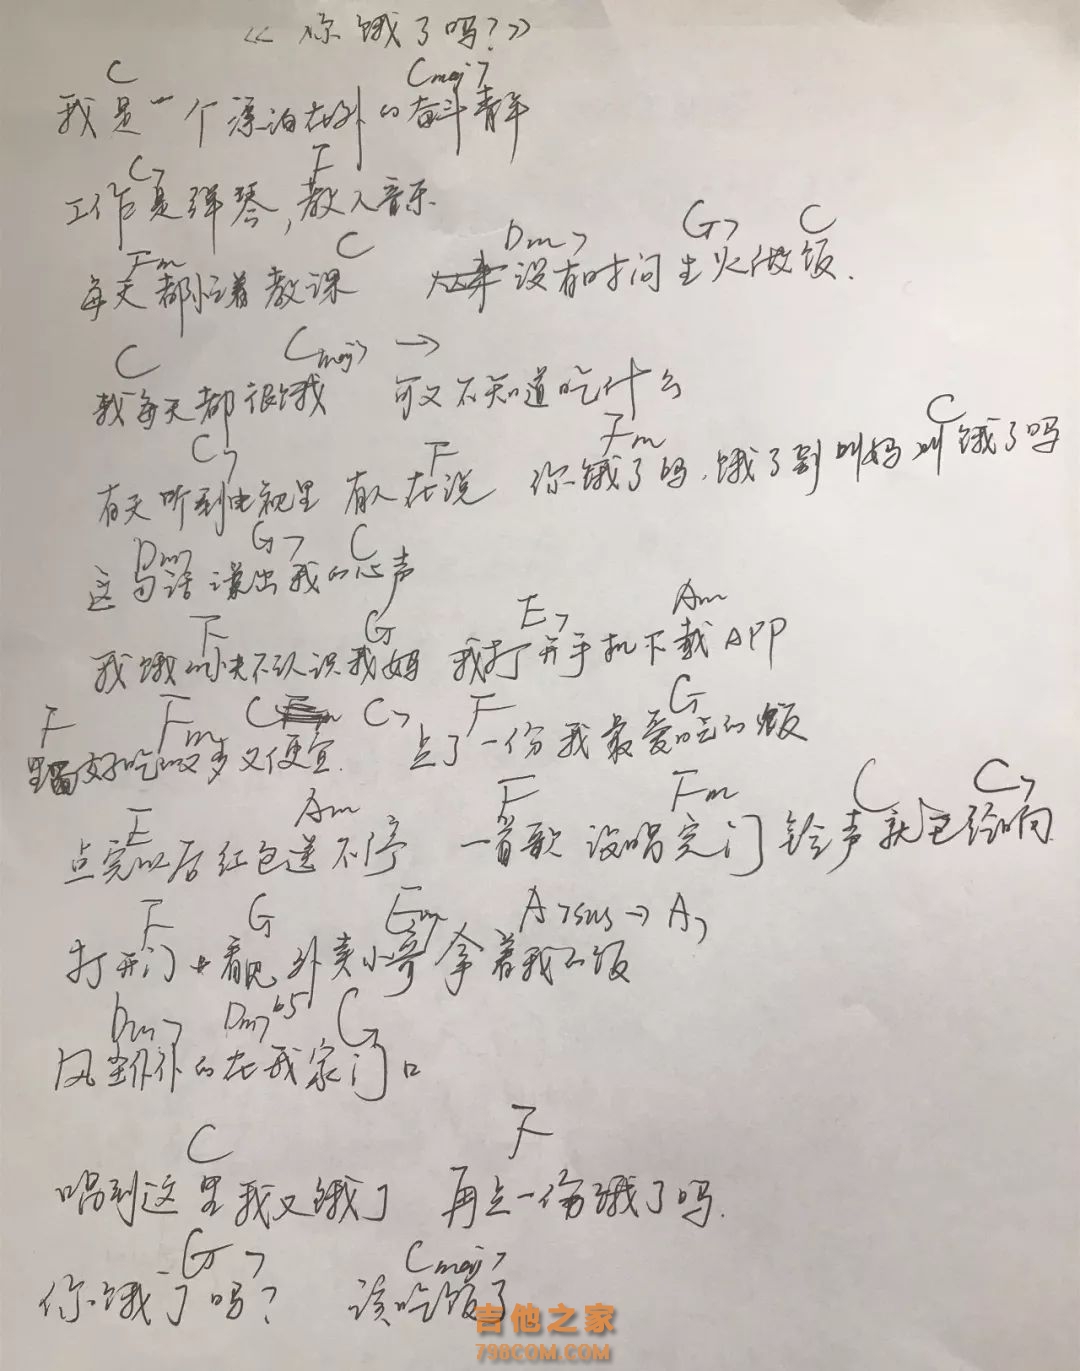 《你饿了吗?》
C Cmaj7
我是一个漂泊在外的奋斗青年
C7 F
工作是弹琴,教人音乐.
Fm C Dm7 G7 C
每天都忙着教课 没有时间生火做饭.
C Cmaj7 →
我每天都很饿 可又不知道吃什么
C7 F Fm C
有天听到电视里 有人在说 你饿了吗.饿了别叫妈叫饿了吗
Dm7 G7 C
这句话说出我的心声
F G E7 Am
我饿的快不认识我妈 我打开手机下载APP
F Fm C C7 F G
好吃的多又便宜. 点了一份我最爱吃的饭
E Am F Fm C C7
点完以后红包送不停 一首歌没唱完门铃声就已经响
F G Em A7sus→A7
打开门 看见外卖小哥拿着我的饭
Dm7 Dm7b5 G
风尘仆仆的在我家门口
C F
唱到这里我又饿了 再点一份饿了吗.
G7 Cmaj7
你饿了吗? 该吃饭了
吉他之家
798COM.COM